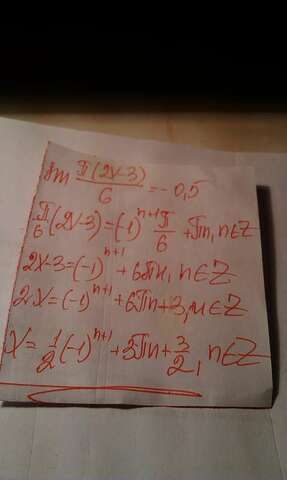 sin π(2x-3)/6 = -0,5
π/6 (2x-3) = (-1)^(n+1) π/6 + πn, n∈Z
2x-3 = (-1)^(n+1) + 6πn, n∈Z
2x = (-1)^(n+1) + 6πn + 3, n∈Z
x = 1/2 (-1)^(n+1) + 3πn + 3/2, n∈Z